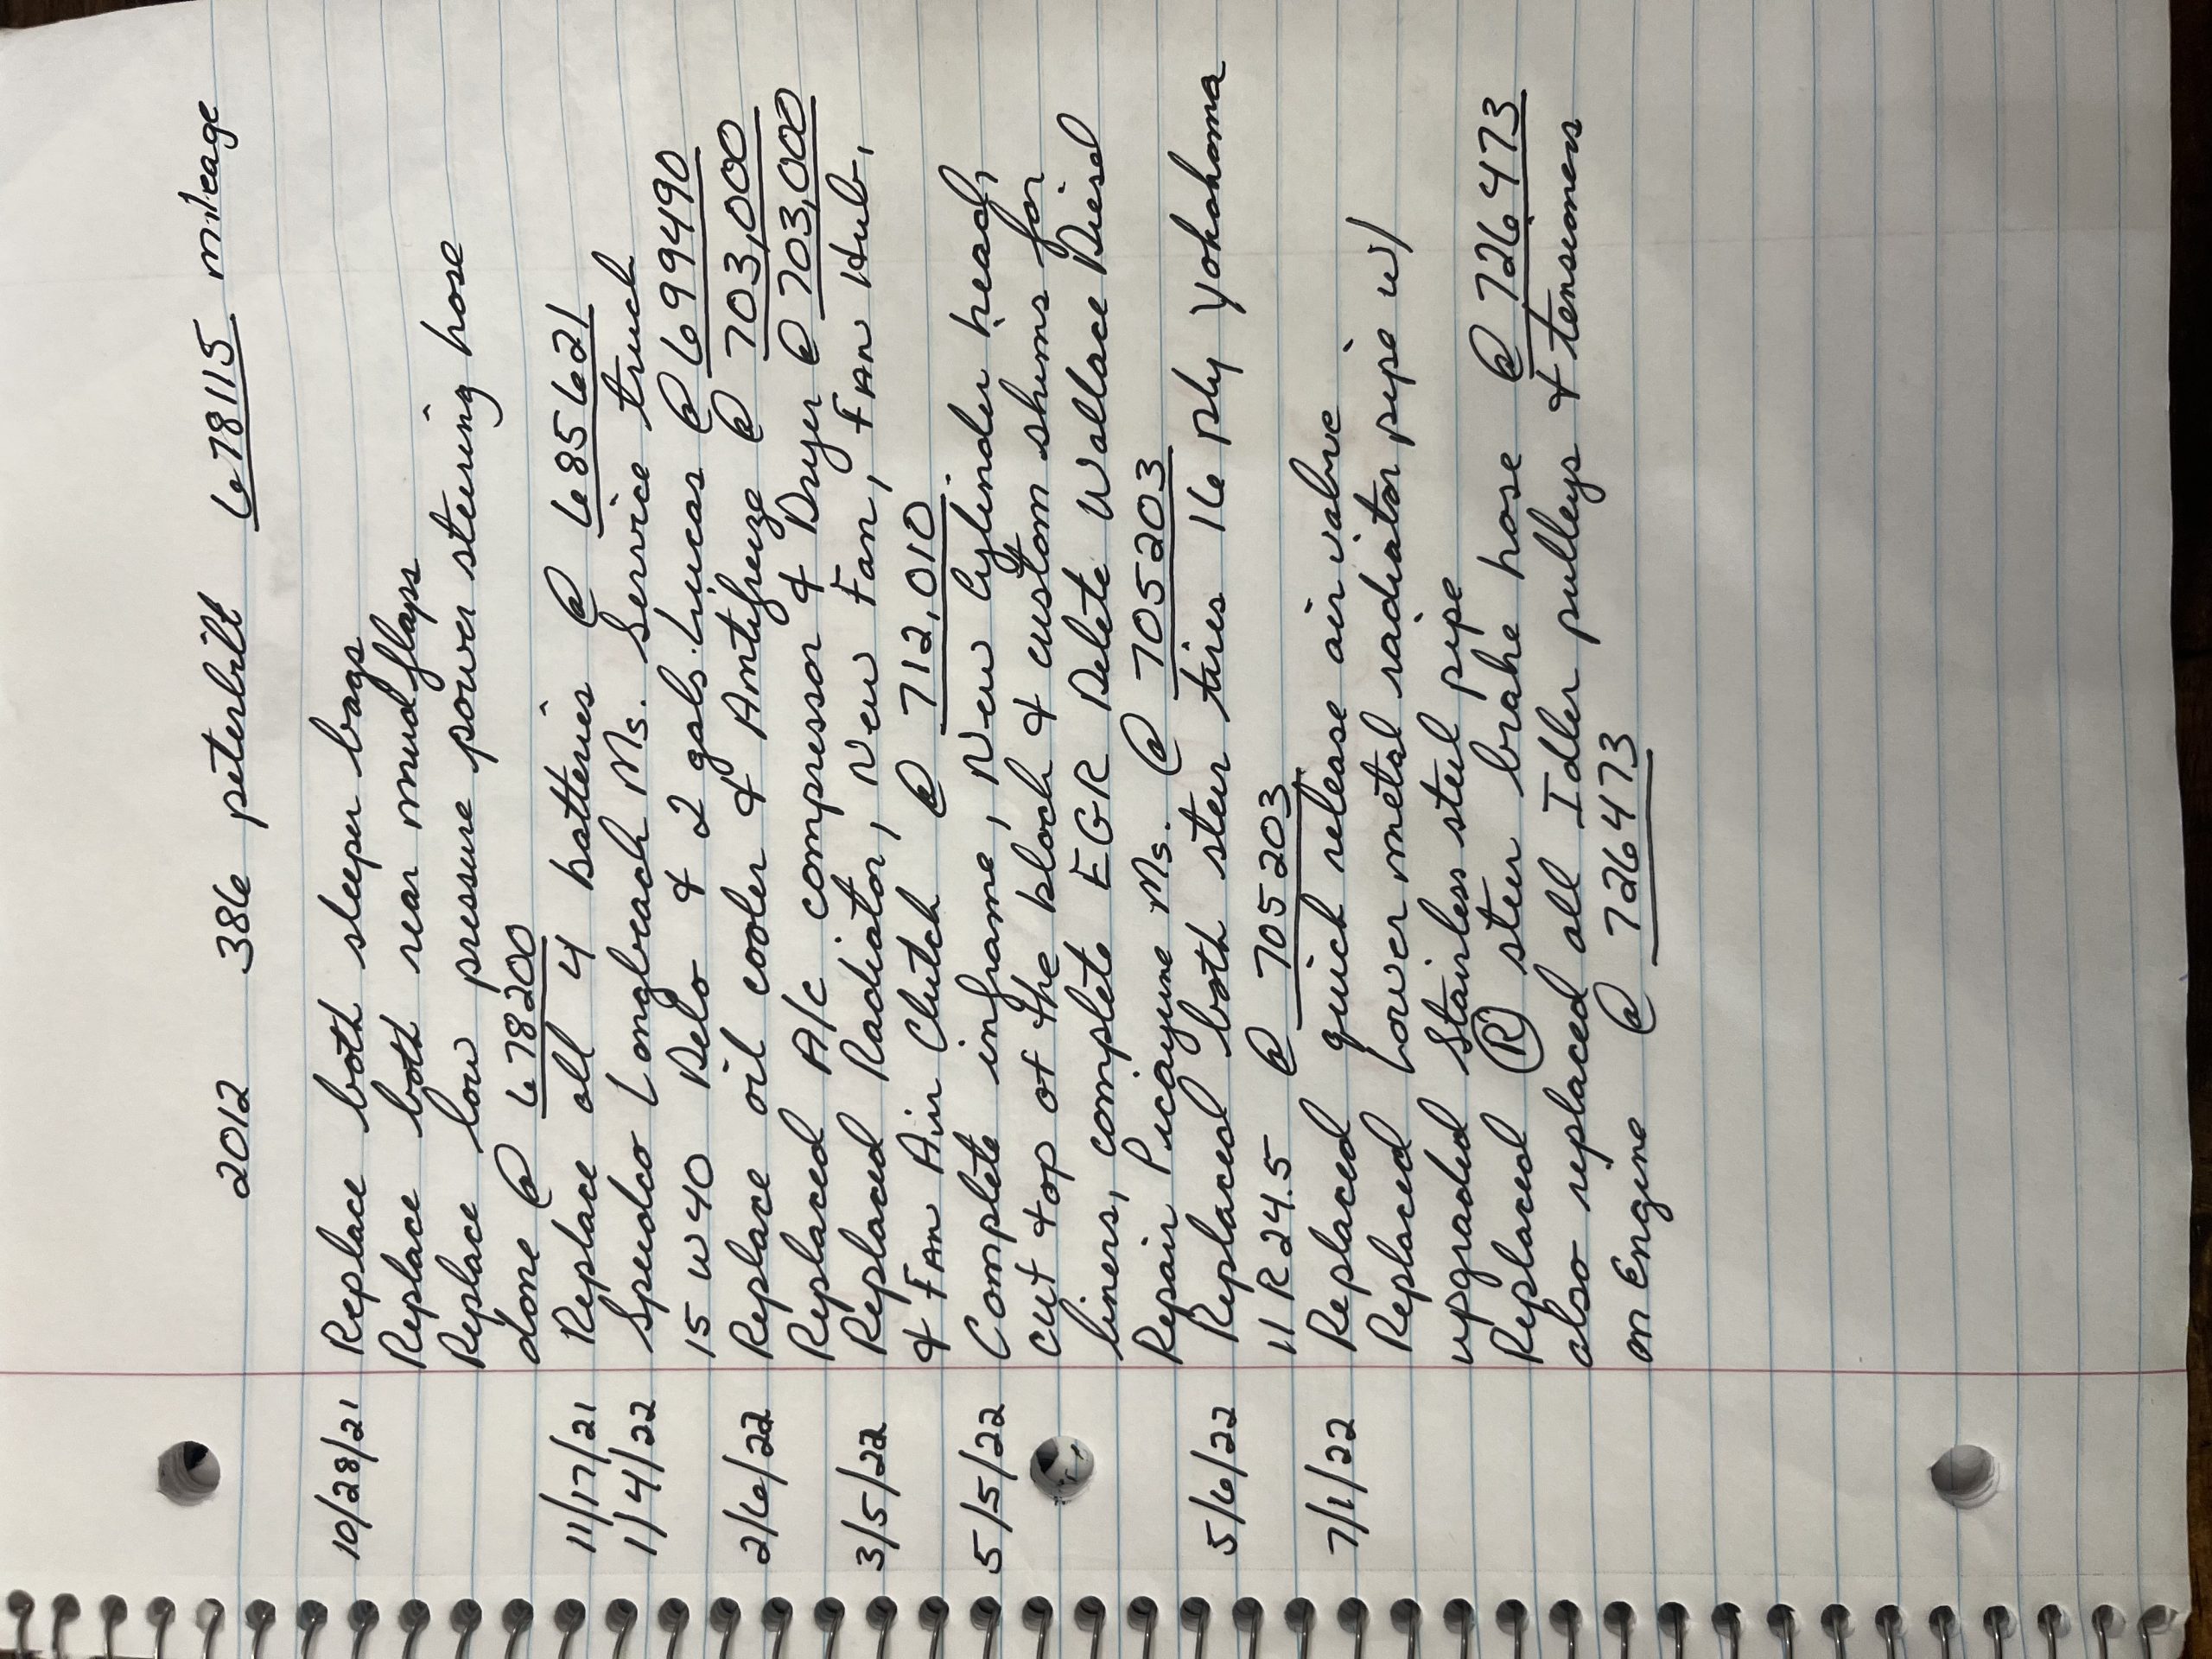 2012 386 peterbilt 678115 mileage
10/28/21 Replace both sleeper bags
Replace both rear mud flaps
Replace low pressure power steering hose
done @ 678200
11/17/21 Replace all 4 batteries @ 685621
1/4/22 Speedco Longbeach Ms. Service truck
15 W 40 Delo & 2 gals. Lucas @ 699490
2/6/22 Replace oil cooler & Antifreeze @ 703,000
Replaced A/C compressor & Dryer @ 703,000
3/5/22 Replaced Radiator, New Fan, Fan Hub,
& Fan Air Clutch @ 712,010.
5/5/22 Complete inframe, New Cylinder head,
cut top of the block & custom shims for
liners, complete EGR Delete Wallace Diesel
Repair Picayune Ms. @ 705203
5/6/22 Replaced both steer tires 16 ply Yokohoma
11 R 24.5 @ 705203
7/1/22 Replaced quick release air valve
Replaced Lower metal radiator pipe w/
upgraded Stainless steel pipe
Replaced (R) steer brake hose @ 726473
also replaced all Idler pulleys & tensioners
on Engine @ 726473